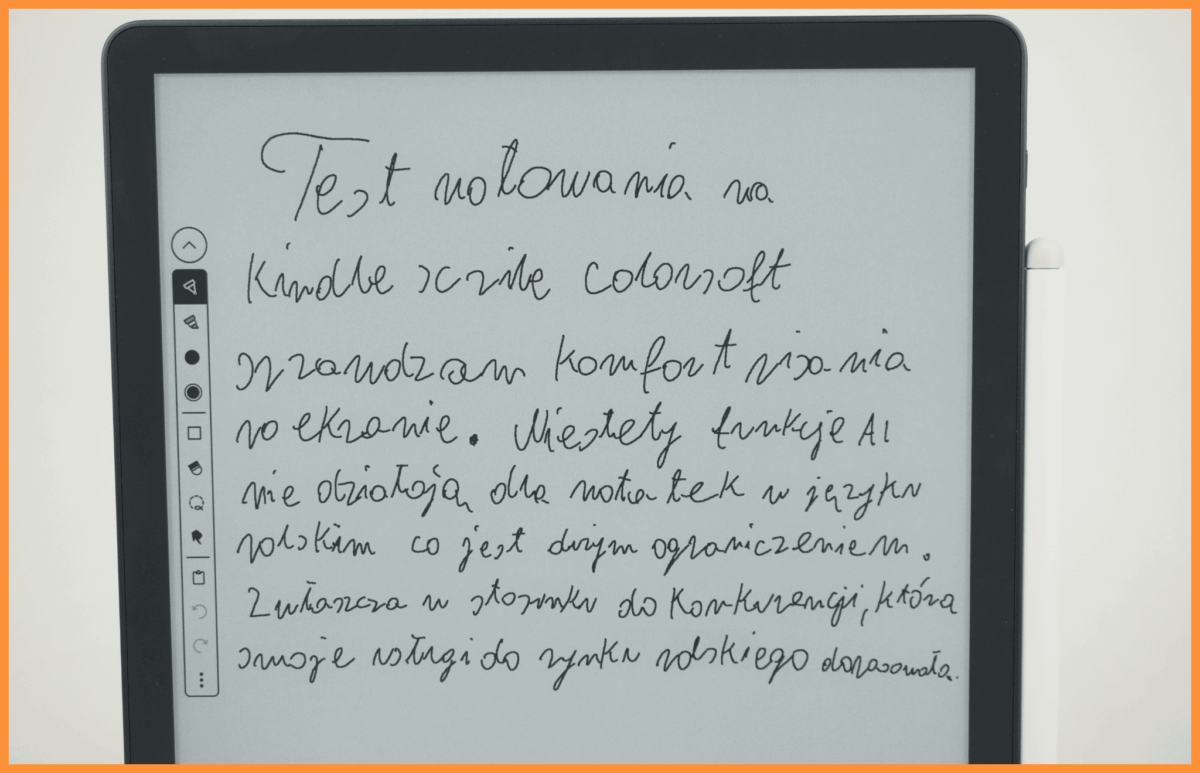 Test notowania na
Kindle scribe colorsoft
sprawdzam komfort pisania
po ekranie. Niestety funkcje AI
nie działają dla notatek w języku
polskim co jest dużym ograniczeniem.
Zwłaszcza w stosunku do konkurencji, która
swoje usługi do rynku polskiego dopasowała.